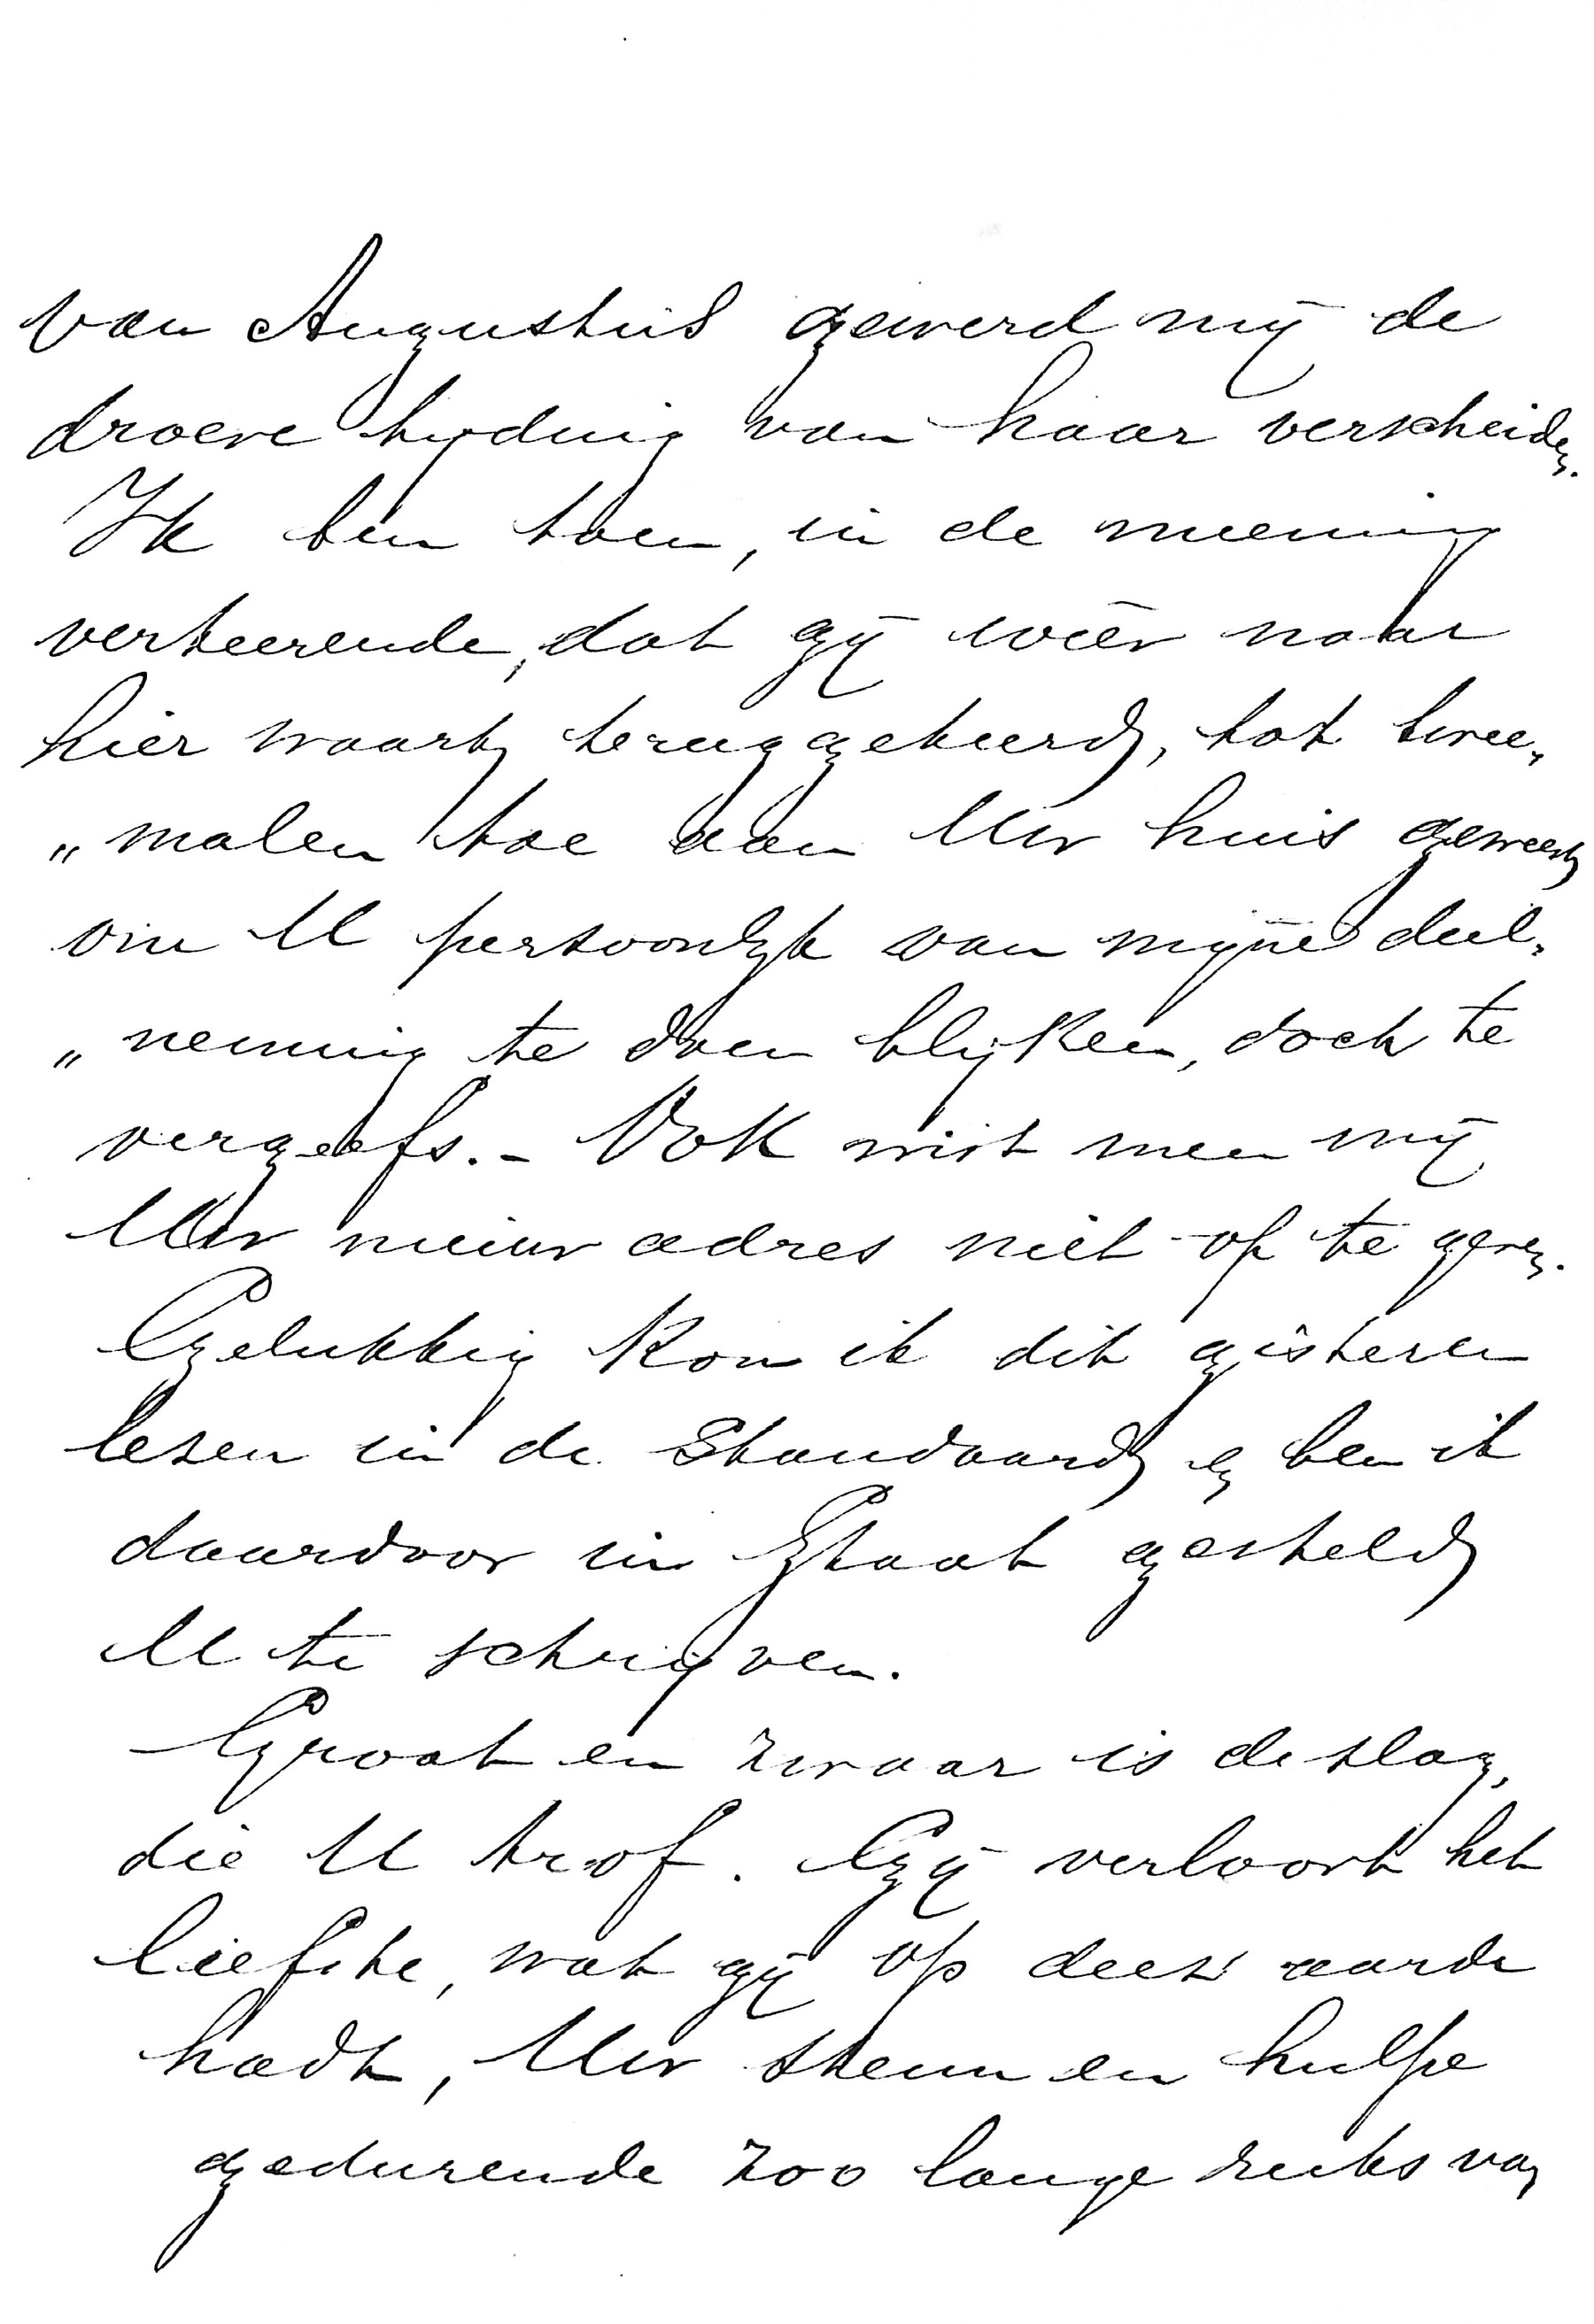 van Augustus gewerd mij de
droeve tijding van haar verscheiden.
Ik ben toen, in de meening
verkeerende, dat gij weêr naar
hier waart teruggekeerd, tot twee„
„malen toe aan Uw huis geweest
om U persoonlijk van mijne deel„
„neming te doen blijken, doch te
vergeefs. – Ook wist men mij
Uw nieuw adres niet op te geven.
Gelukkig kon ik dit gisteren
lezen in de Standaard en ben ik
daardoor in Staat gesteld
U te schrijven.
Groot en zwaar is de slag,
die U trof. Gij verloort het
liefste, wat gij op deez' aarde
hadt, Uw steun en hulpe
gedurende zoo lange reeks van